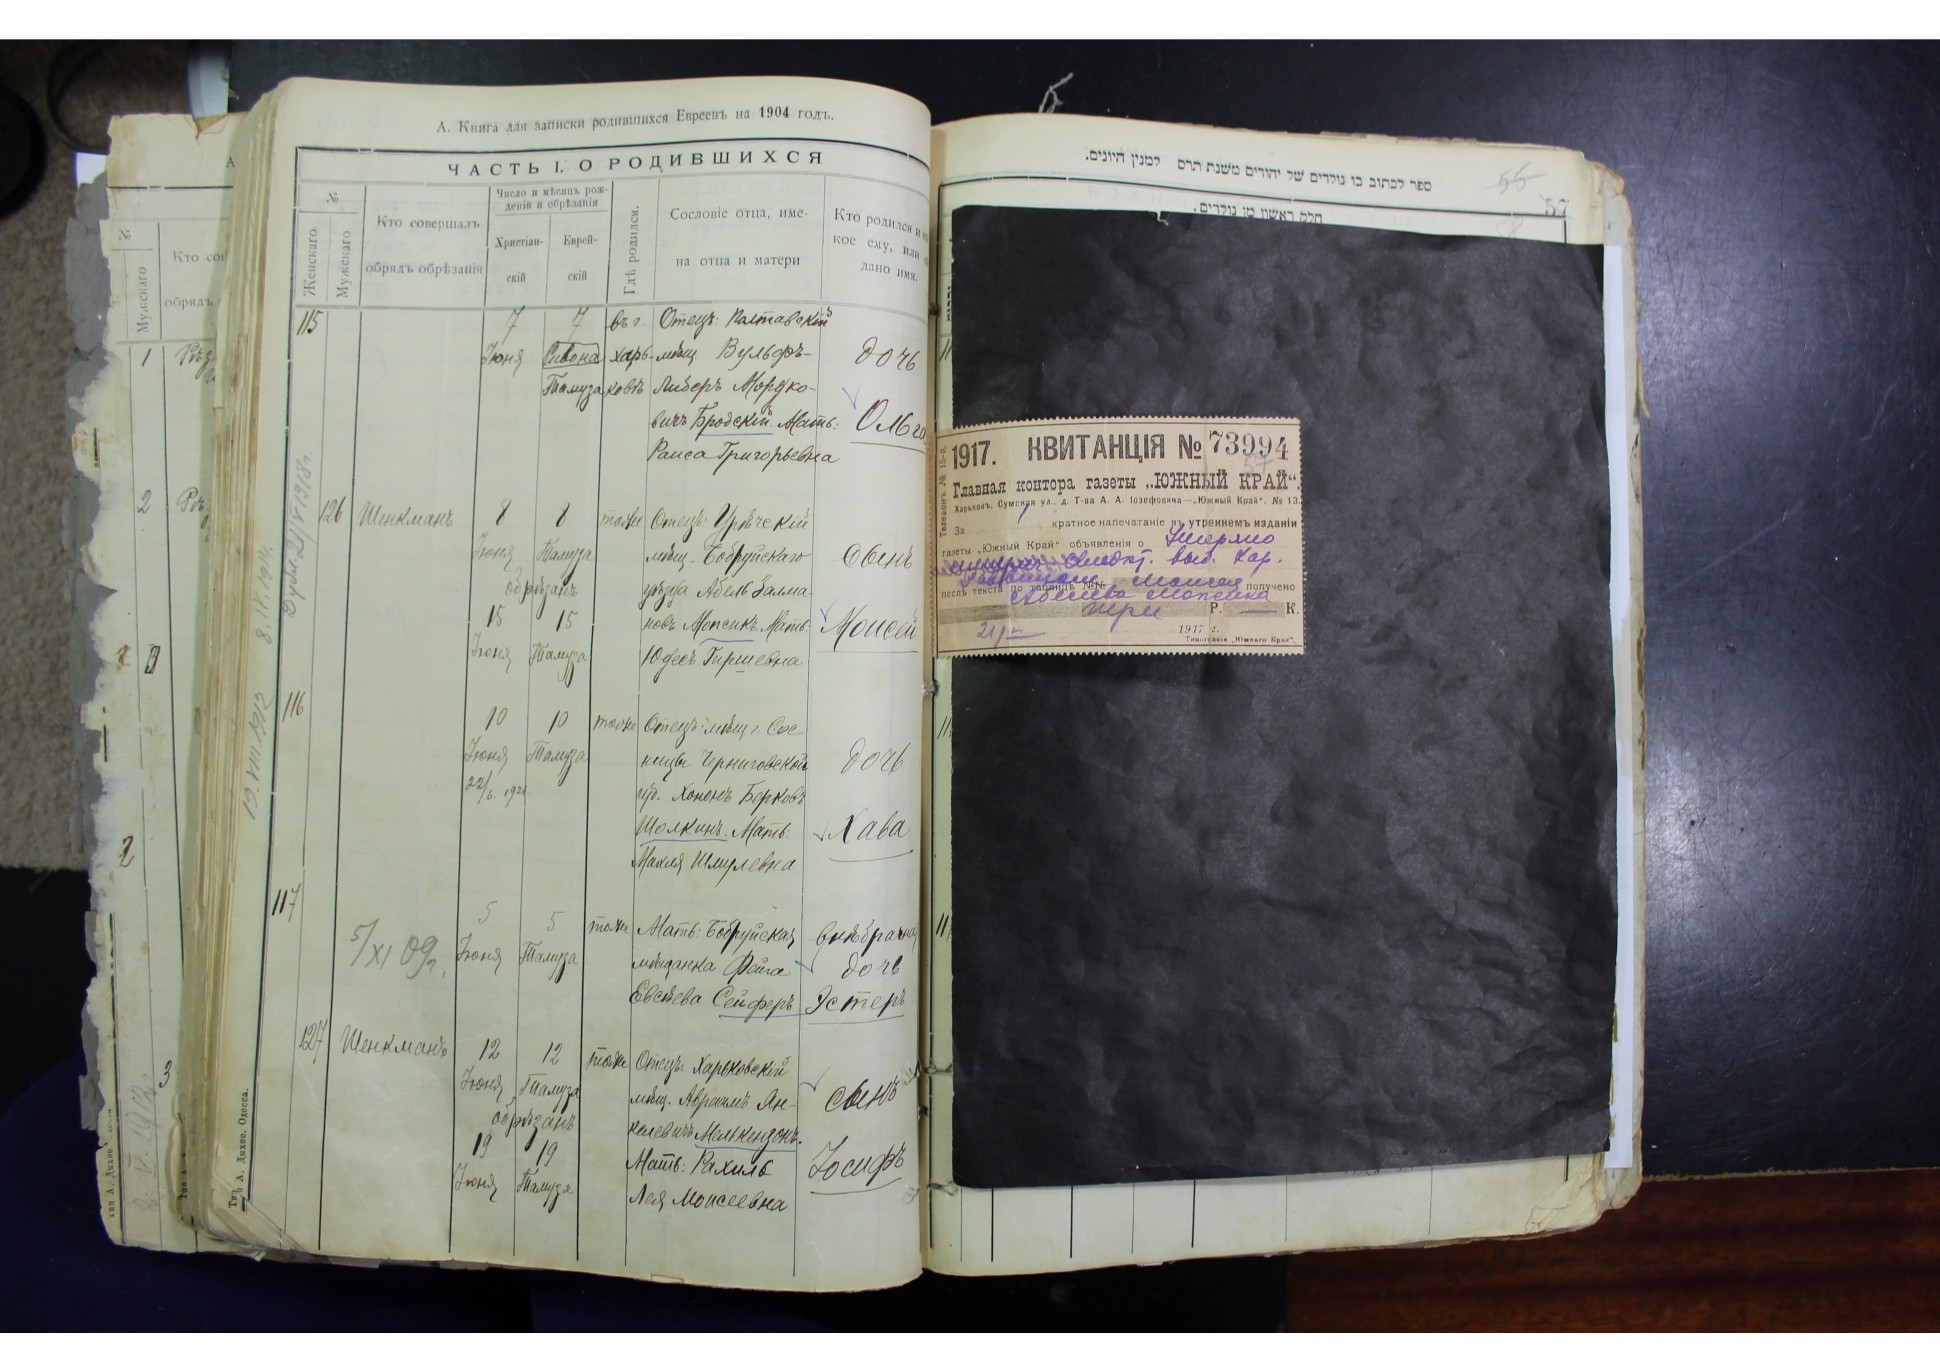 А. Книга для записки родившихся Евреевъ на 1904 годъ.
ЧАСТЬ I. О РОДИВШИХСЯ
№
Женскаго.
Мужскаго
Кто совершалъ
обрядъ обрѣзанія
Число и мѣсяцъ рож-
денія и обрѣзанія
Христіан-
скій
Еврей-
скій
Гдѣ родился.
Сословіе отца, име-
на отца и матери
Кто родился и
кое ему, или
дано имя.
115
7 7 въ г. Отецъ: Полтавскій
Іюня Сивона харь- мѣщ. Вульфъ- дочь
Тамуза ковѣ Либеръ Мордко-
вичъ Бродскій. Мать: Ольга
Раиса Григорьевна
126 Шенкманъ 8 8 тоже Отецъ: Урѣчскій
Іюня Тамуза мѣщ. Бобруйскаго сынъ
обрѣзанъ уѣзда Абель Залма-
15 15 новъ Мопсикъ. Мать: Моисей
Іюня Тамуза Юдесъ Гиршевна
116
10 10 тоже Отецъ: мѣщ. г. Сос-
Іюня Тамуза ницы Черниговской дочь
22/6. 1921 губ. Хононъ Берковъ
Шолкинъ. Мать: Хава
Махля Шмулевна
117
5 5 тоже Мать: Бобруйская внѣбрачная
5/XI 09г. Іюня Тамуза мѣщанка Фейга дочь
Евсѣева Сейферъ Эстеръ
127 Шенкманъ 12 12 тоже Отецъ: Харьковскій
Іюня Тамуза мѣщ. Авраамъ Ян- сынъ
обрѣзанъ келевичъ Мелькендонъ.
19 19 Мать: Рахиль Іосифъ
Іюня Тамуза Лея Моисеевна
21/VI 1918г.
8.IX.1914.
19.VIII 1912
Тип. А. Дихно, Одесса.
№
Мужскаго
Кто
обрядъ
1
2
2
3
ספר לכתוב בו נולדים של יהודים משנת תרס למנין היונים.
חלק ראשון מן נולדים.
55
57
Телефонъ № 15-й.
1917. КВИТАНЦІЯ № 73994
57
Главная контора газеты „ЮЖНЫЙ КРАЙ“.
Харьковъ, Сумская ул., д. Т-ва А. А. Іозефовича—„Южный Край“. № 13.
За кратное напечатаніе въ утреннемъ изданіи
газеты „Южный Край“ объявленія о
послѣ текста по таблицѣ №№ Моисея получено
Абелева Мопсика
Р. — К.
1917 г.
Типографія „Южнаго Края“.